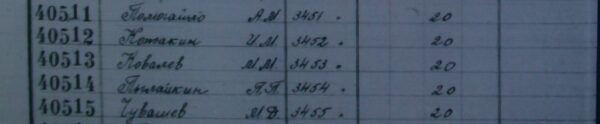 40511 Помогайло А.М. 3451 20
40512 Котакин И.М. 3452 20
40513 Ковалев М.М. 3453 20
40514 Пылайкин П.П. 3454 20
40515 Чувашев М.Д. 3455 20